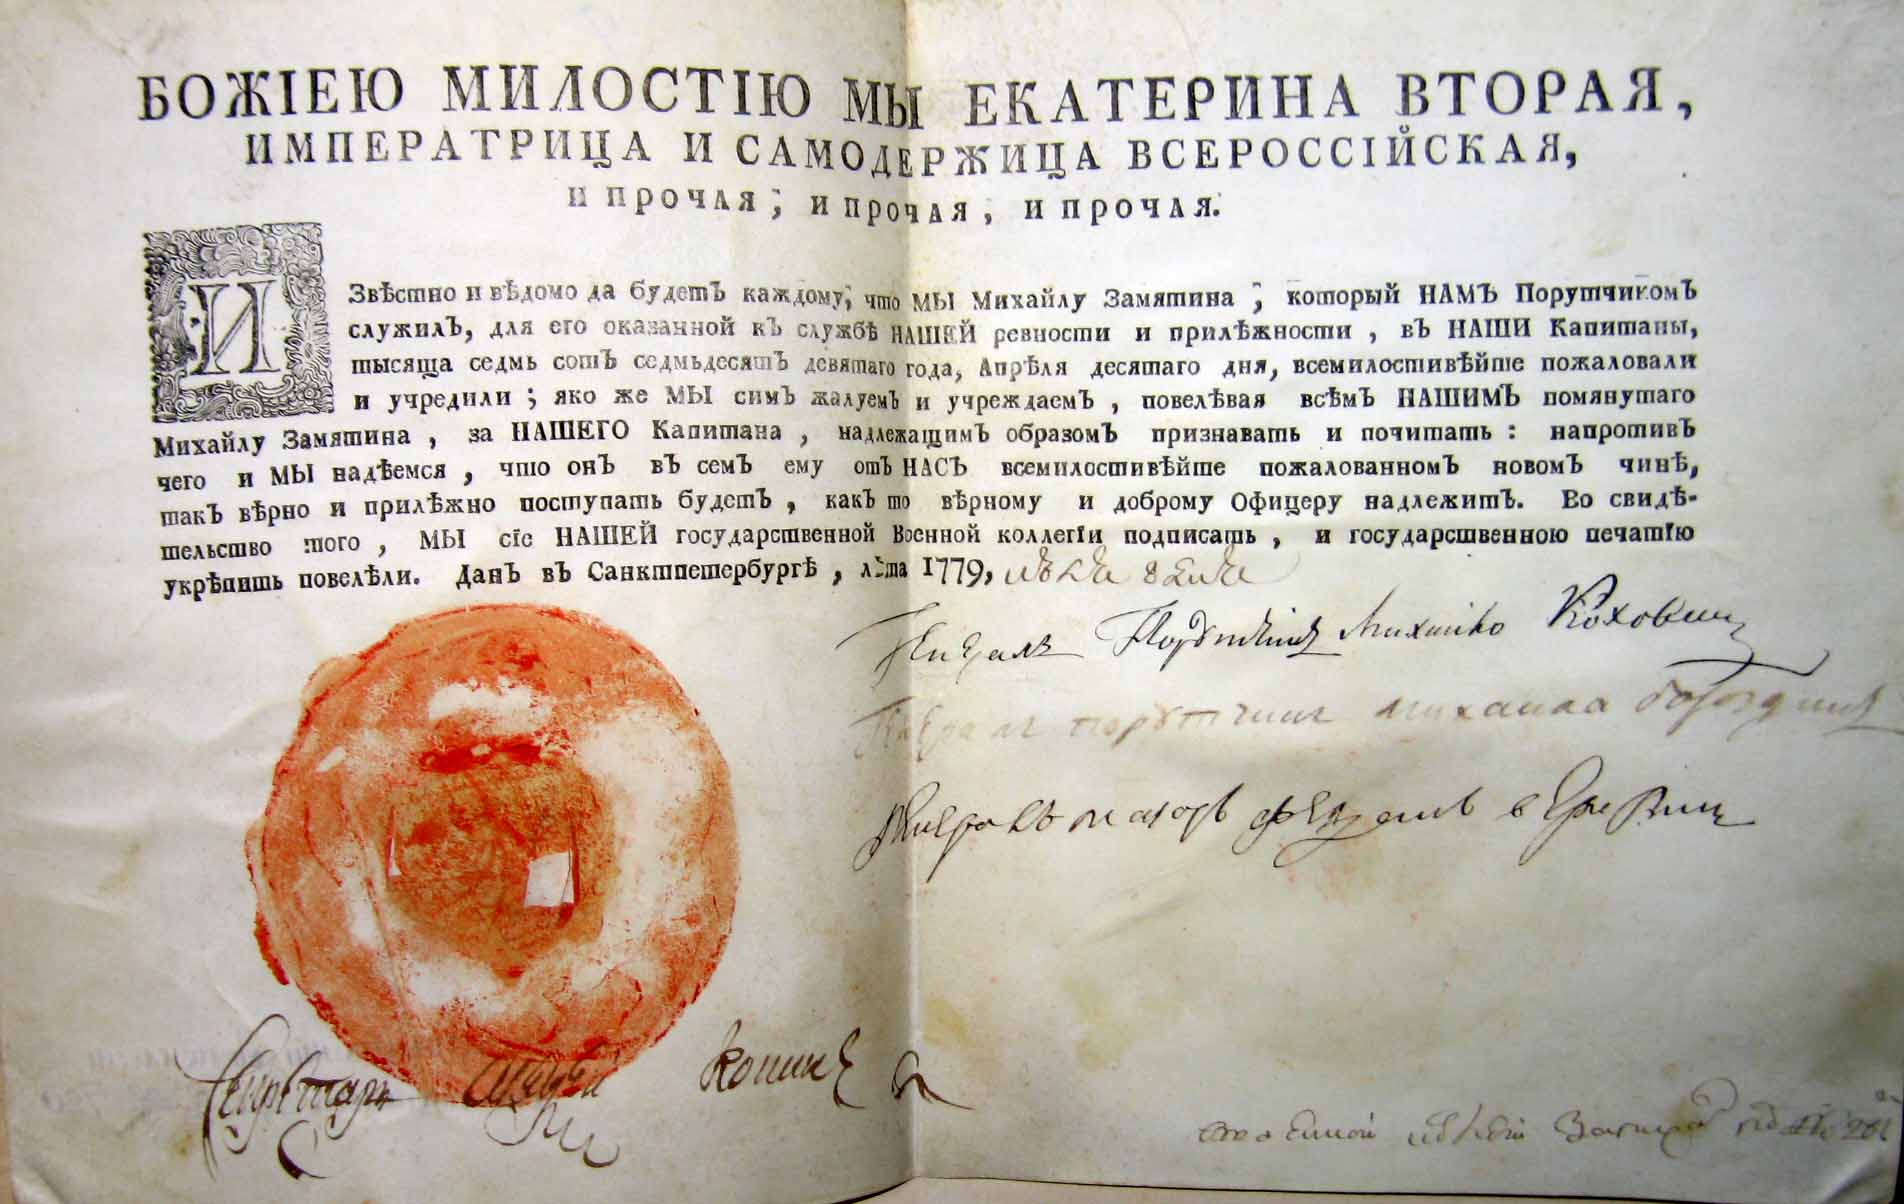 БОЖІЕЮ МИЛОСТІЮ МЫ ЕКАТЕРИНА ВТОРАЯ,
ИМПЕРАТРИЦА И САМОДЕРЖИЦА ВСЕРОССІЙСКАЯ,
И ПРОЧАЯ, И ПРОЧАЯ, И ПРОЧАЯ.
ИЗвѣстно и вѣдомо да будетЪ каждому, что МЫ Михайлу Замятина, который НАМЪ ПорутчикомЪ
служилЪ, для его оказанной кЪ службѣ НАШЕЙ ревности и прилѣжности, вЪ НАШИ Капитаны,
тысяща седмь сотЪ седмьдесятЪ девятаго года, Апрѣля десятаго дня, всемилостивѣйше пожаловали
и учредили; яко же МЫ симЪ жалуемЪ и учреждаемЪ, повелѣвая всѣмЪ НАШИМЪ помянутаго
Михайлу Замятина, за НАШЕГО Капитана, надлежащимЪ образомЪ признавать и почитать: напротивЪ
чего и МЫ надѣемся, что онЪ вЪ семЪ ему отЪ НАСЪ всемилостивѣйше пожалованномЪ новомЪ чинѣ,
такЪ вѣрно и прилѣжно поступать будетЪ, какЪ то вѣрному и доброму Офицеру надлежитЪ. Во свидѣ-
тельство того, МЫ сіе НАШЕЙ государственной Военной коллегіи подписать, и государственною печатію
укрѣпить повелѣли. ДанЪ вЪ Санктпетербургѣ, лѣта 1779,
Порутчикъ Михайло
порутчикъ михайла
маиоръ
Секретарь